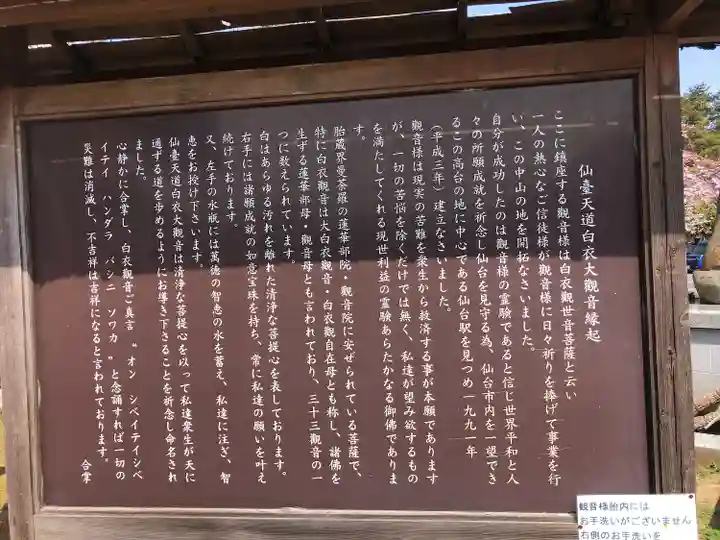 仙臺天道白衣大觀音縁起
ここに鎮座する觀音様は白衣觀世音菩薩と云い
一人の熱心なご信徒様が觀音様に日々祈りを捧げて事業を行
い、この中山の地を開拓なさいました。
自分が成功したのは觀音様の霊驗であると信じ世界平和と人
々の所願成就を祈念し仙台を見守る為、仙台市内を一望でき
るこの高台の地に中心である仙台駅を見つめ一九九一年
（平成三年）建立なさいました。
觀音様は現実の苦難を衆生から救済する事が本願であります
が、一切の苦悩を除くだけでは無く、私達が望み欲するもの
を満たしてくれる現世利益の霊験あらたかなる御佛でありま
す。
胎蔵界曼荼羅の蓮華部院・觀音院に安ぜられている菩薩で、
特に白衣觀音は大白衣觀音・白衣觀自在母とも称し、諸佛を
生ずる蓮華部母・觀音母とも言われており、三十三觀音の一
つに数えられています。
白はあらゆる汚れを離れた清浄な菩提心を表しております。
右手には諸願成就の如意宝珠を持ち、常に私達の願いを叶え
続けております。
又、左手の水瓶には萬徳の智恵の水を蓄え、私達に注ぎ、智
恵をお授け下さいます。
仙臺天道白衣大觀音は清浄な菩提心を以って私達衆生が天に
通ずる道を歩めるようにお導き下さることを祈念し命名され
ました。
心静かに合掌し、白衣觀音ご真言 “オン シベイテイシベ
イテイ ハンダラ バシニ ソワカ ”と念誦すれば一切の
災難は消滅し、不吉祥は吉祥になると言われております。
合掌
観音様胎内には
お手洗いがございません
右側のお手洗いを